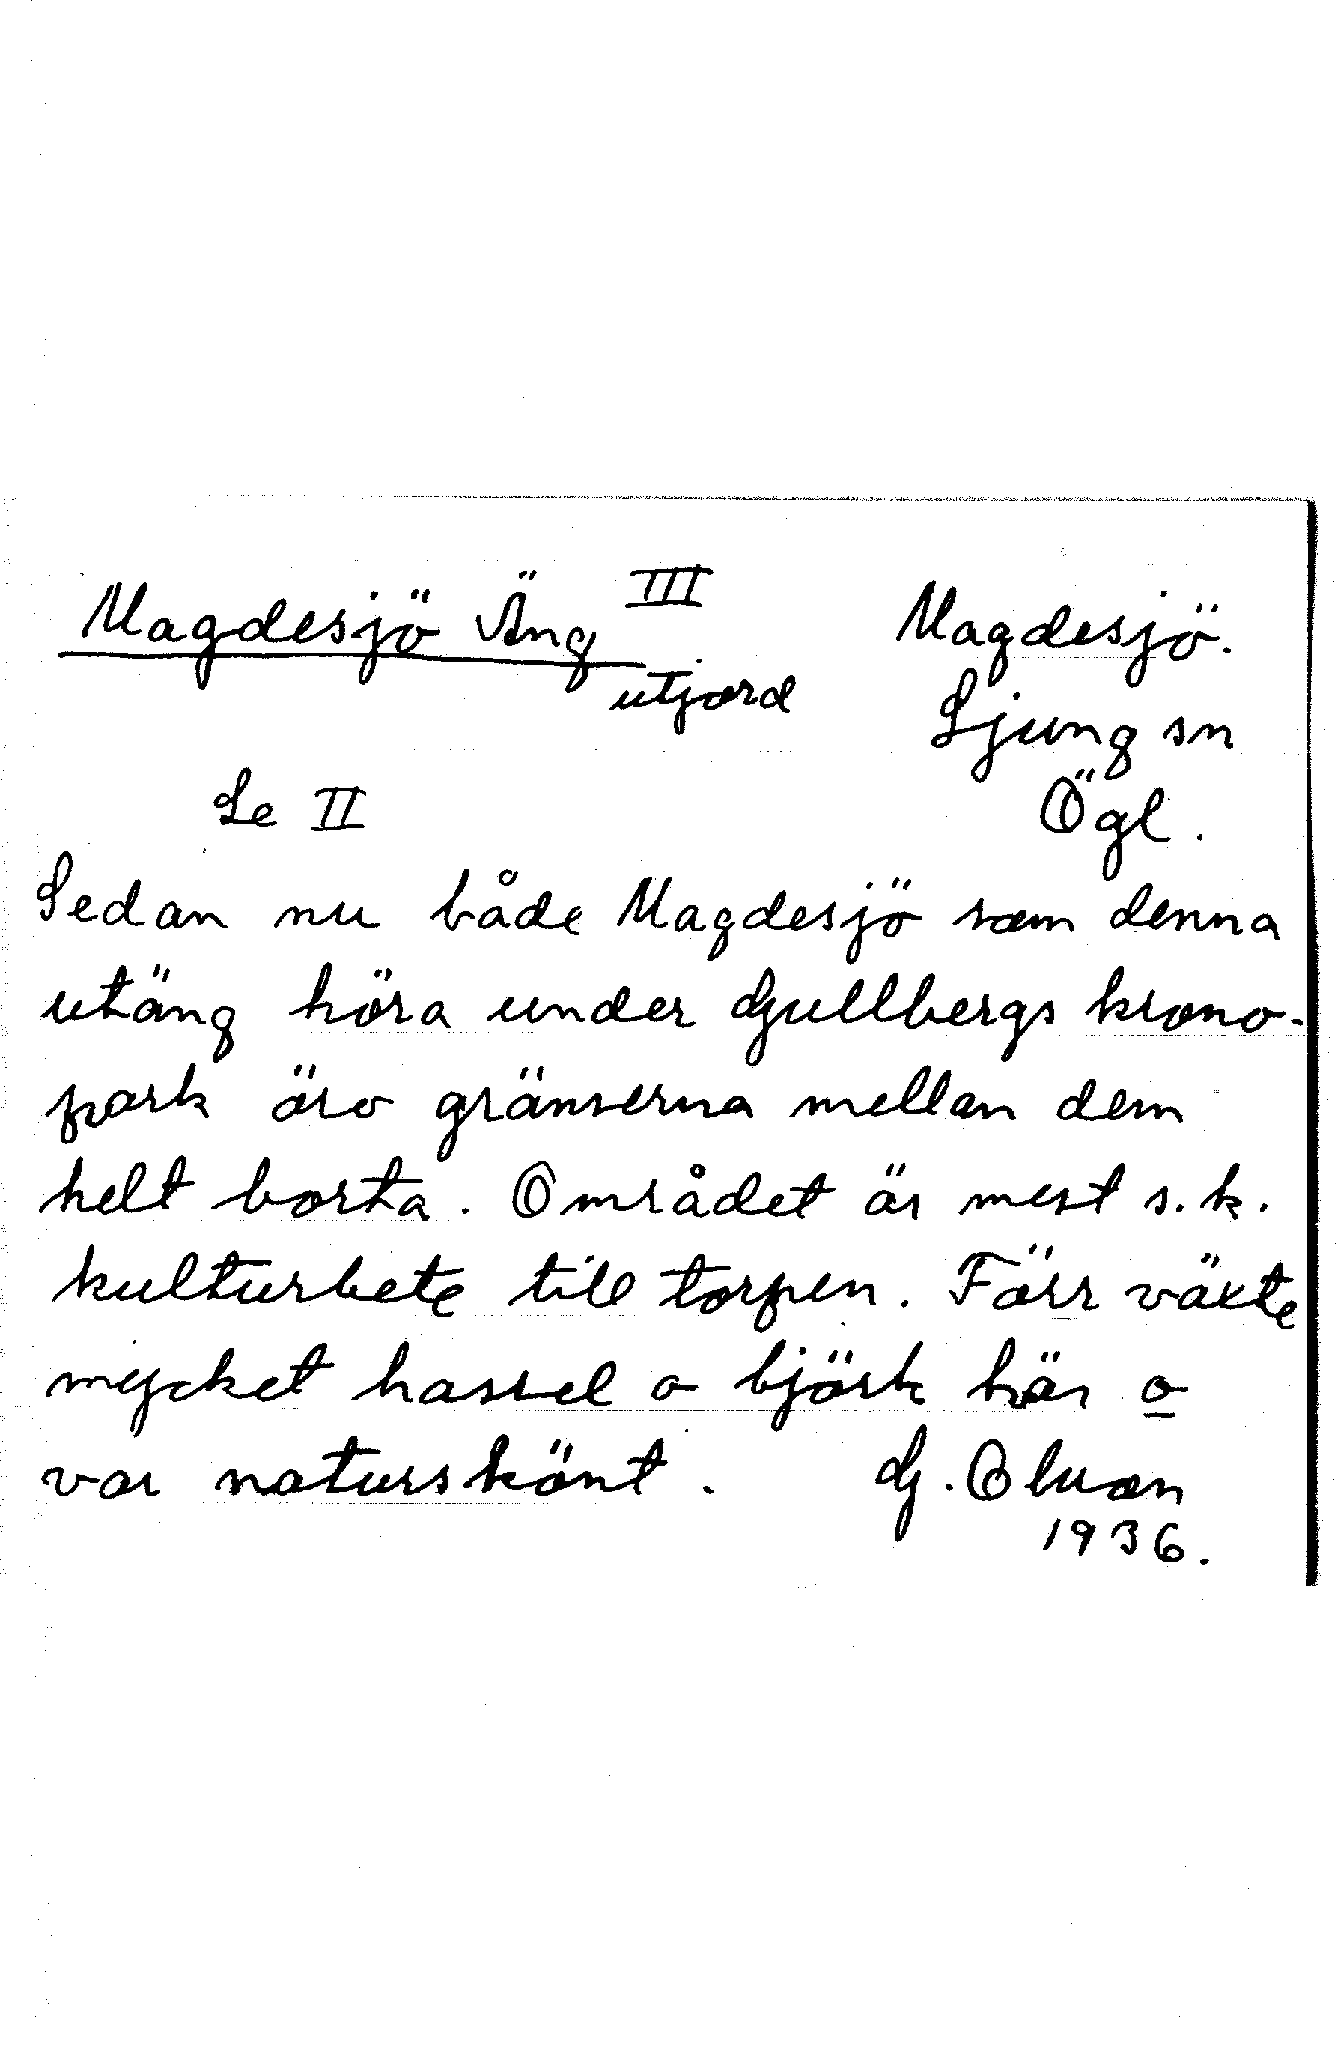 Magdesjö Äng III
utjord
Magdesjö.
Ljung sn
Ögl.
Se II
Sedan nu både Magdesjö som denna
utäng höra under Gullbergs krono-
park äro gränserna mellan dem
helt borta. Området är mest s.k.
kulturbete till torpen. Förr växte
mycket hassel o björk här o
var naturskönt. G. Olson
1936.